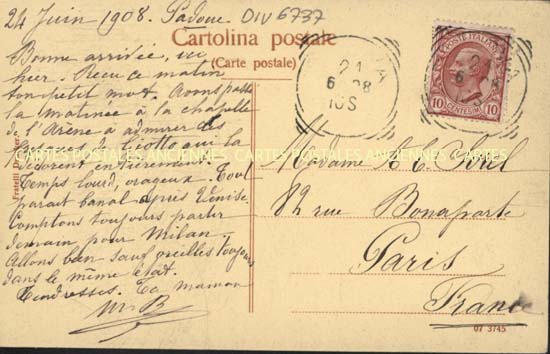 24 Juin 1908. Padoue
DIV 6737
Cartolina postale
(Carte postale)
Bonne arrivée, ici
hier. Reçu ce matin
ton petit mot. Avons passé
la matinée à la chapelle
de l'Arène à admirer les
fresques de Giotto qui la
décorent entièrement.
Temps lourd, orageux. Tout
paraît banal après Venise.
Comptons toujours partir
demain pour Milan.
Allons bien sauf oreilles toujours
dans le même état.
Tendresses. Ta maman
M. B
Fratelli
CARTES POSTALES ANCIENNES
POSTE ITALIANE
10 CENTESIMI 10
21
6 08
10 S
Madame
82 rue Bonaparte
Paris
France
07 3745